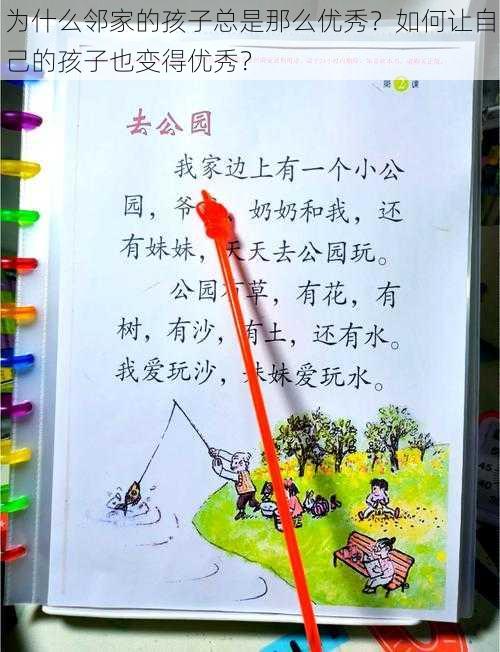 为什么邻家的孩子总是那么优秀？如何让自
己的孩子也变得优秀？
第2课
去公园
我家边上有一个小公
园，爷，奶奶和我，还
有妹妹，天天去公园玩。
公园有草，有花，有
树，有沙，有土，还有水。
我爱玩沙，妹妹爱玩水。